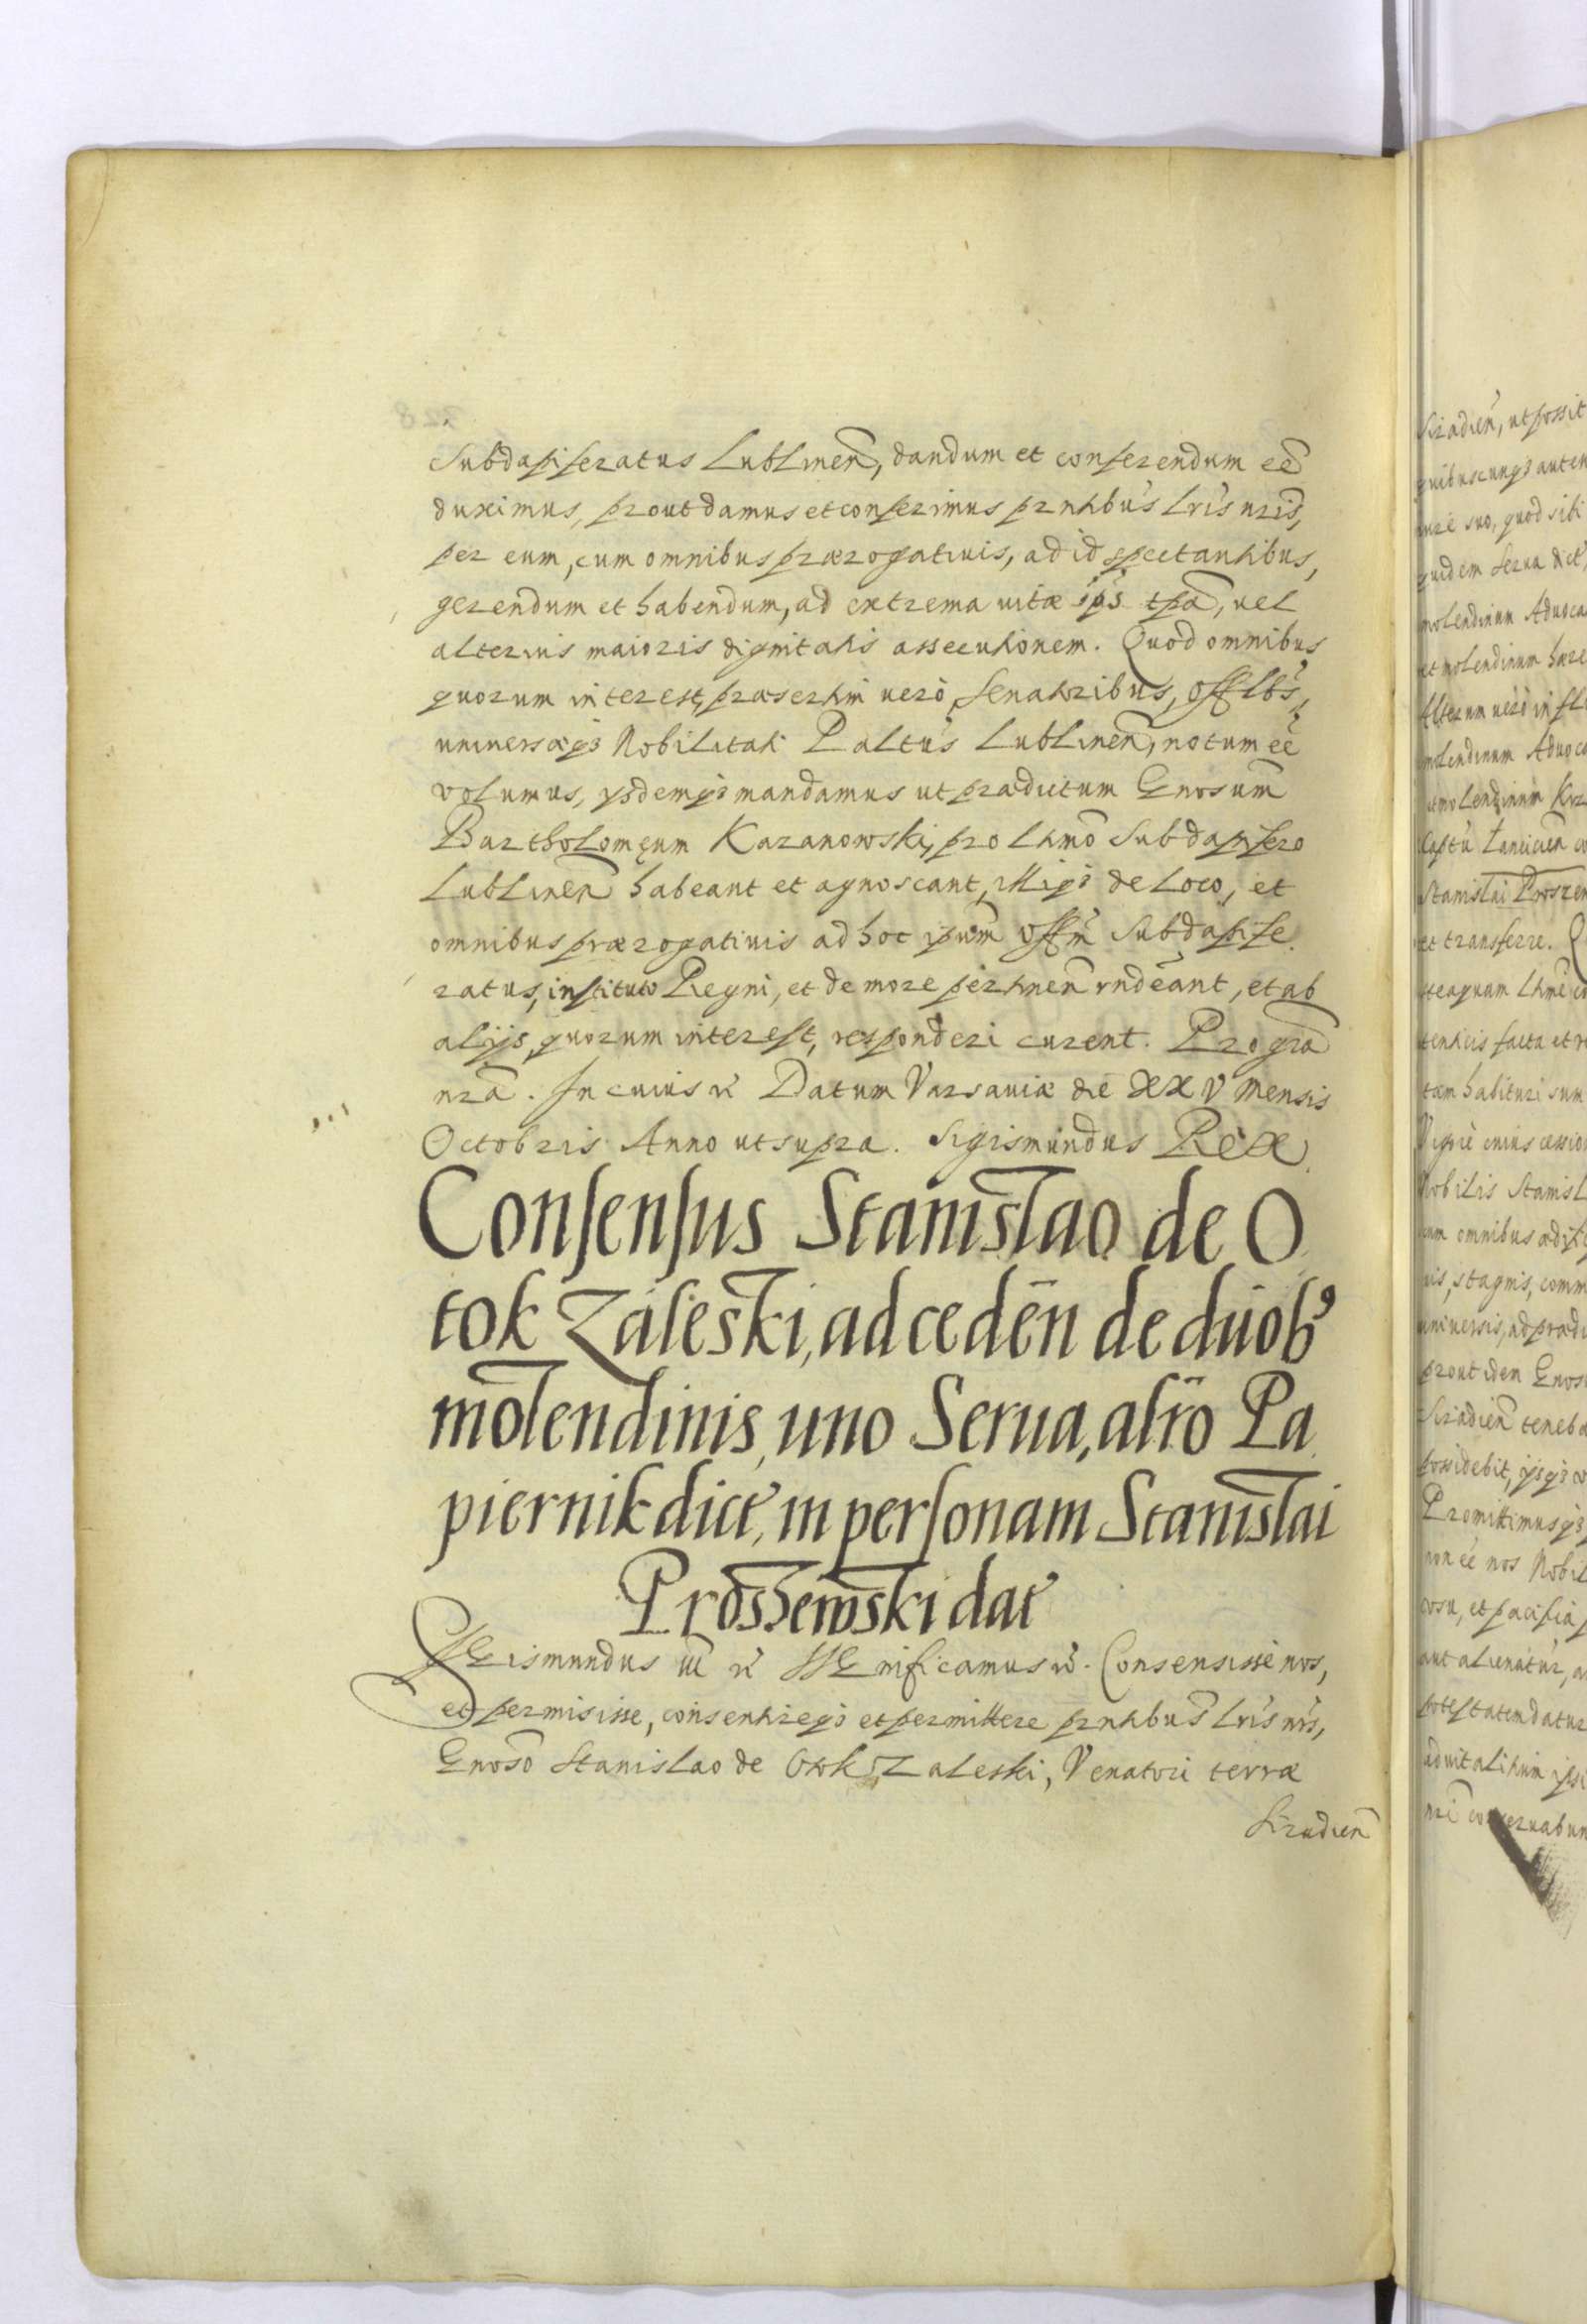 Subdapiferatus Lublinen̄, dandum et conferendum eē
duximus, prout damus et conferimus pr̄ntibus Lr̄is nr̄is,
per eum, cum omnibus prærogatiuis, ad id spectantibus,
gerendum et habendum, ad extrema uitæ ip̄s tp̄a, uel
alterius maioris dignitatis assecutionem. Quod omnibus
quorum interest, præsertim uerò Senatoribus, Offl̄bs,
uniuersæq₃ Nobilitati Paltūs Lublinen̄, notum eē
volumus, ysdemq₃ mandamus ut prædictum Gnosum̄
Bartholomęum Kazanowski, pro Ltimō Subdapifero
Lublinen̄ habeant et agnoscant, illiq₃ de loco, et
omnibus prærogatiuis ad hoc ipsum̄ offm̄ Subdapife
ratus, instituto Regni, et de more pertinen̄ rn̄deant, et ab
alijs, quorum interest, responderi curent. Pro gr̄a
nr̄a. In cuius rē Datum Varsauiæ die XXV Mensis
Octobris Anno ut supra. Sigismundus Rex
Consensus Stanislao de O
tok Zaleski, ad ceden̄ de duob⁹
molendinis, uno Serua, altr̄o Pa
piernik dict, in personam Stanislai
Proszewski dat
SIGismundus III rē SIGnificamus rē. Consensisse nos,
et permisisse, consentireq₃ et permittere pr̄ntibus Lr̄is nr̄is,
Gnosō Stanislao de Otok Zaleski, Venatori terræ
Siradien̄
Siradien̄, ut possit
quibuscunq₃ autem
iure suo, quod sibi
quidem Serua dict
molendinum Aduoca
et molendinum hære
Alterum uerò in flu
molendinum Aduoca
et molendinum
Captū Lancicien̄
Stanislai Proszew
et transferre.
tenticis facta et
tam habituri sum
Nobilis Stanisl
cum omnibus
uis, stagnis, comm
uniuersis, ad prædi
prout idem Gnos
Siradien̄ teneba
possidebit, ijsq₃
Promittimusq₃
non eē nos Nobil
potestatem datur